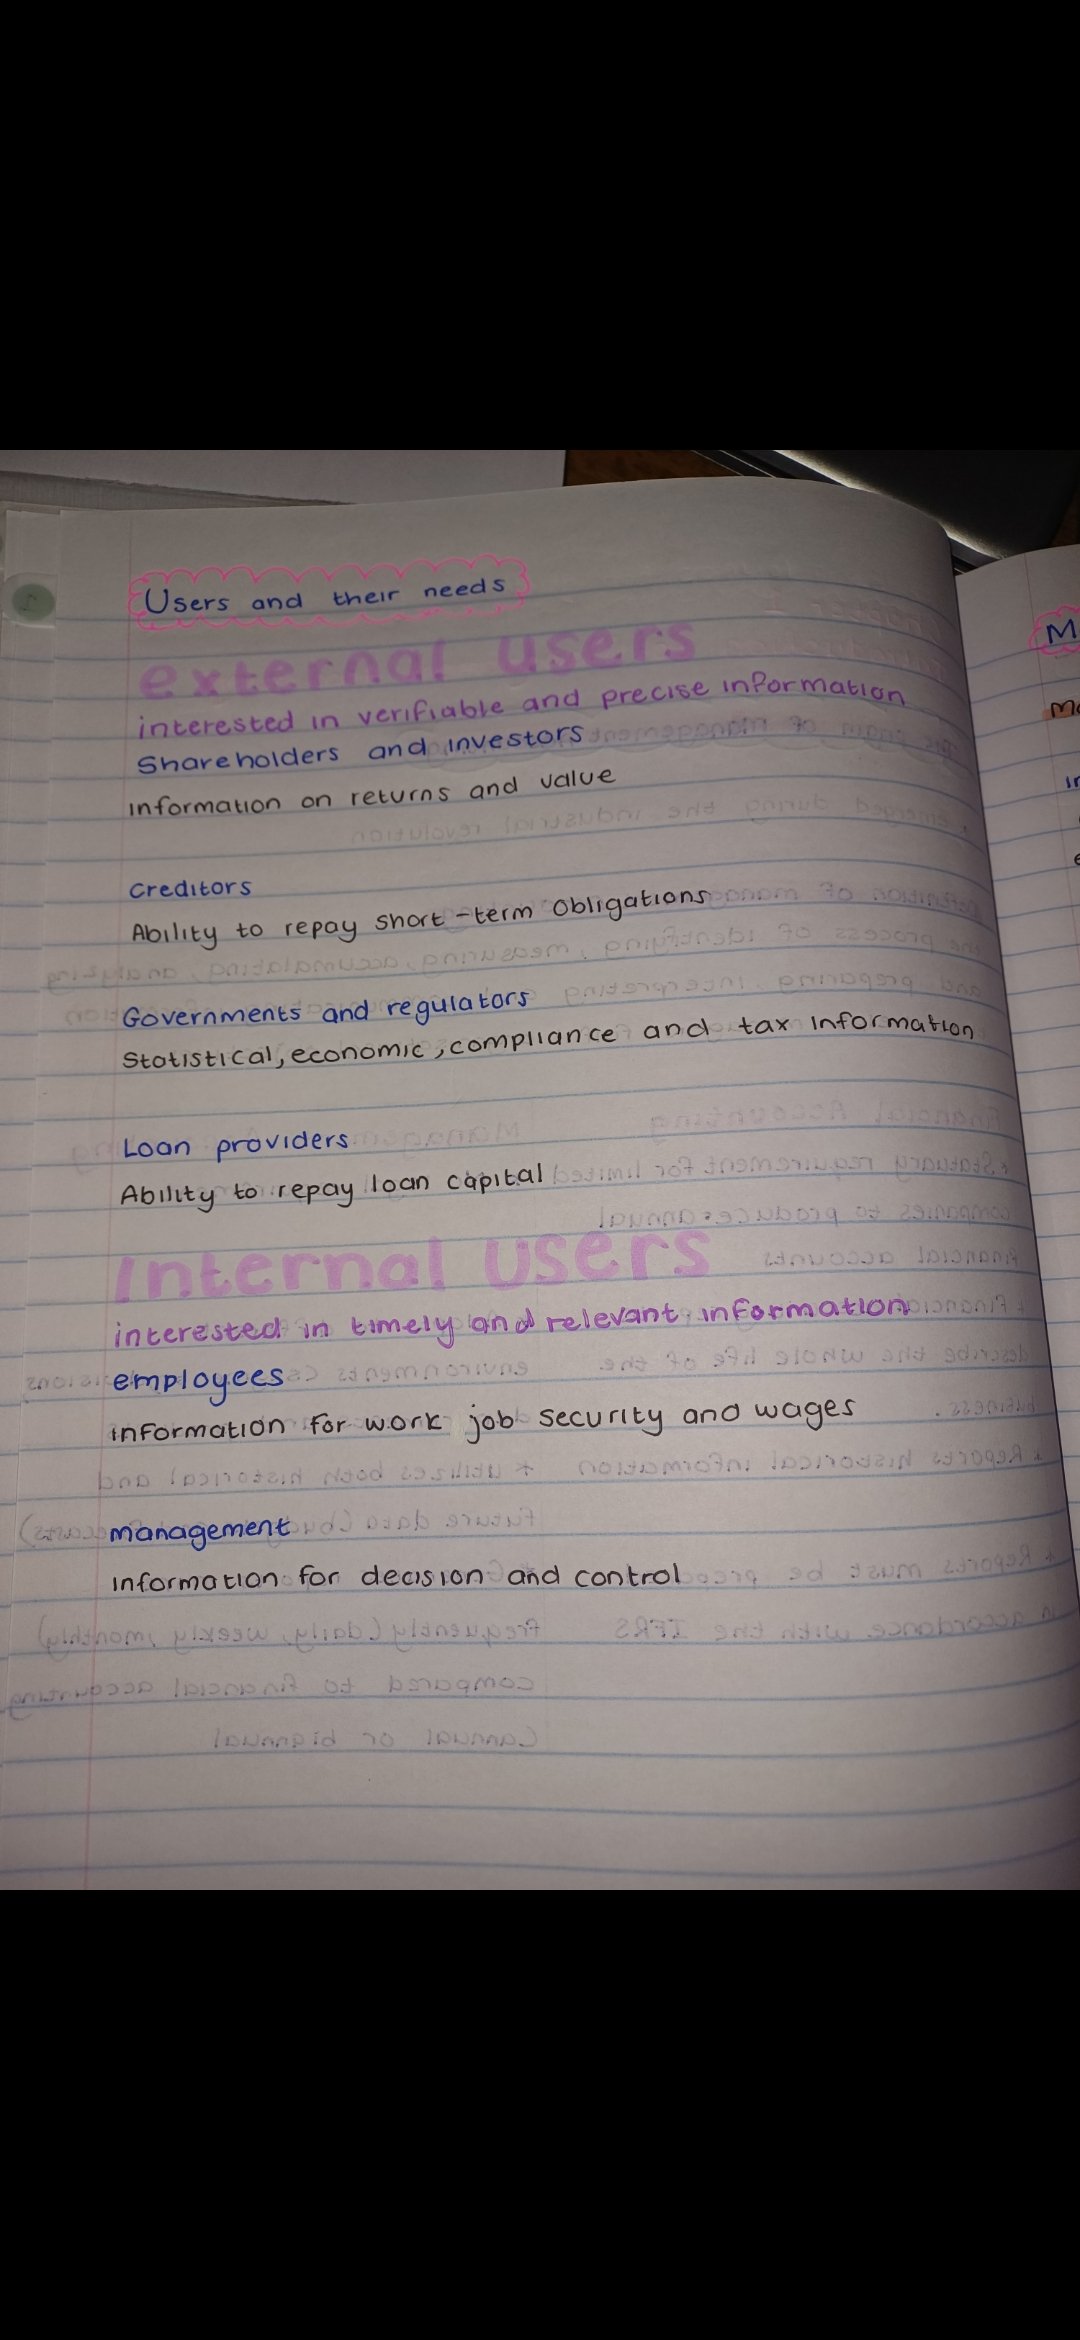 Users and their needs
external users
interested in verifiable and precise information
Shareholders and investors
information on returns and value
Creditors
Ability to repay short-term obligations
Governments and regulators
Statistical, economic, compliance and tax information
Loan providers
Ability to repay loan capital
Internal users
interested in timely and relevant information
employees
information for work job security and wages
management
information for decision and control